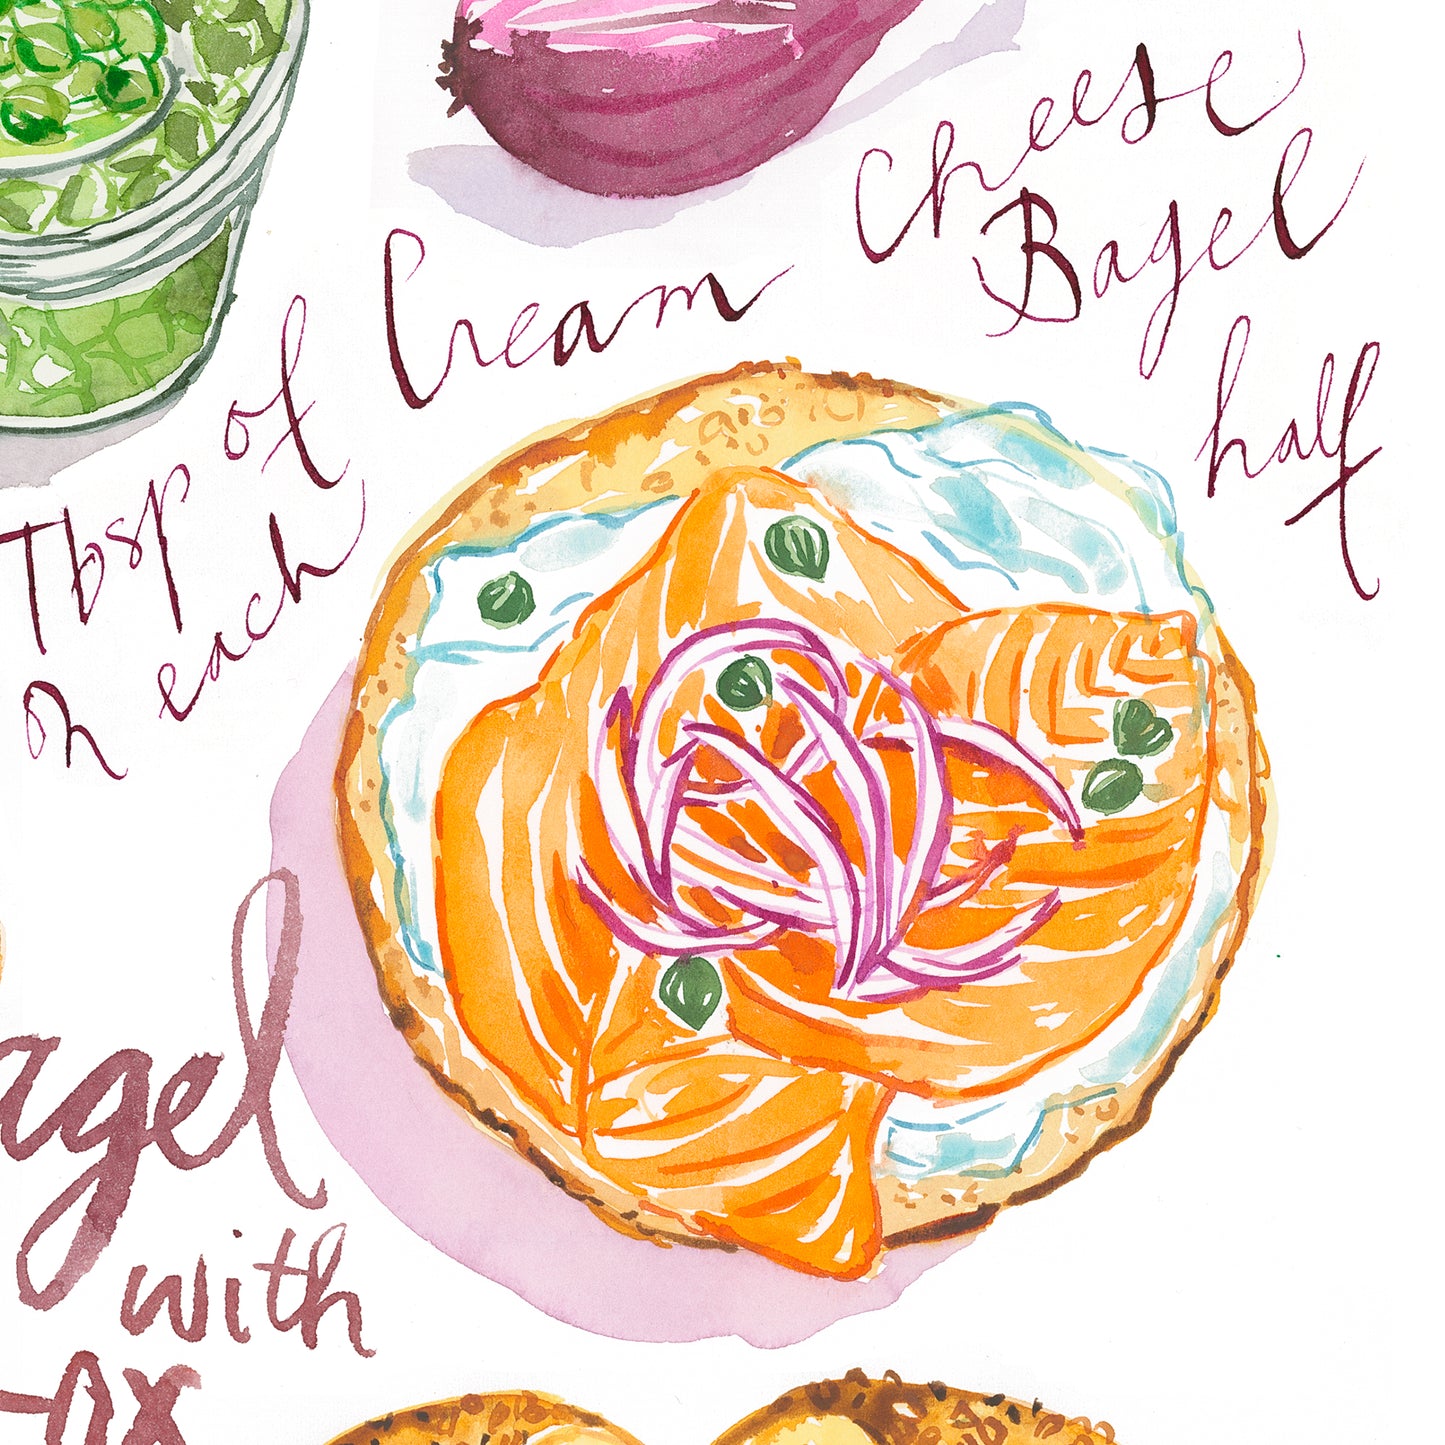 Tbsp of Cream Cheese
on each Bagel
half
agel
with
ox